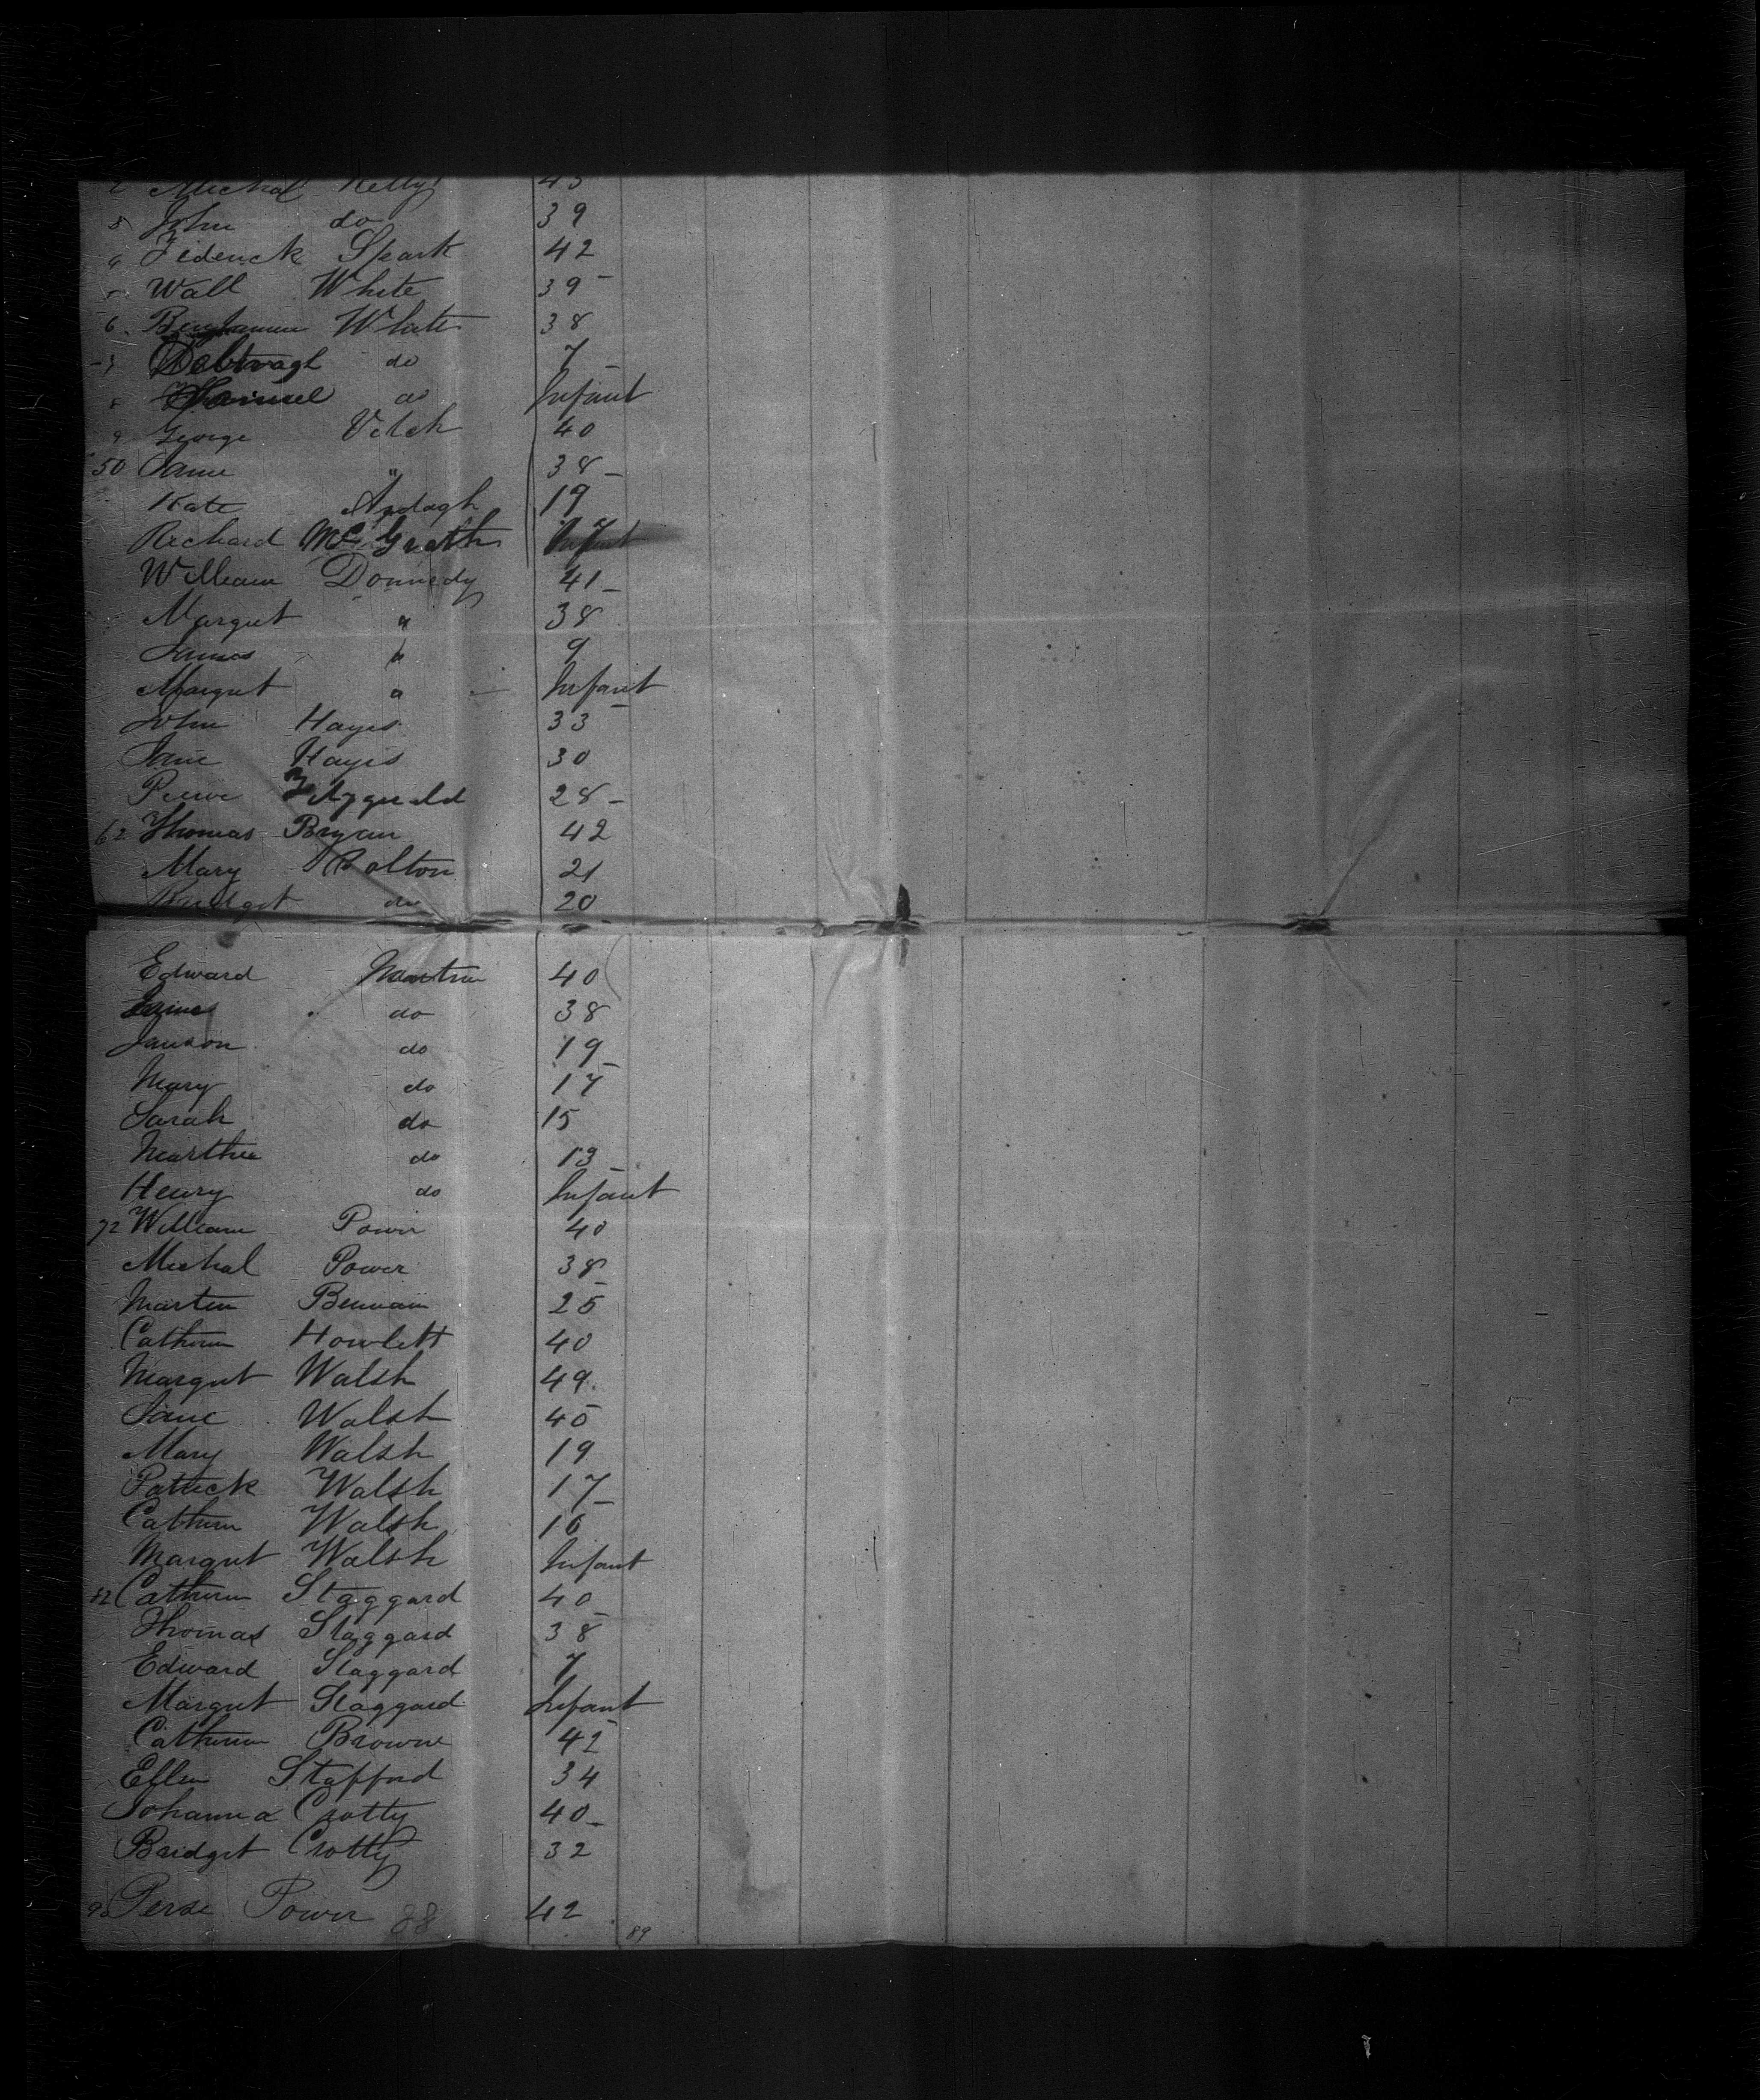 2 Michal Kelly 43
3 John do 39
4 Fiderick Spark 42
5 Wall White 39
6 Benjamin White 38
7 do 7
8 Samuel do Infant
9 George Veleh 40
50 Jane " 38
Kate Ardagh 19
Richard McGrath
William Donnedy 41
Margret " 38
James " 9
Margret " Infant
John Hayes 33
Jane Hayes 30
Pierce Fitzgerald 28
62 Thomas Bryan 42
Mary Bolton 21
Bridget do 20
Edward Martin 40
do 38
do 19
Mary do 17
Sarah do 15
Martha do 13
Henry do Infant
72 William Power 40
Michal Power 38
Martin 25
Catherin Howlett 40
Margret Walsh 49
Jane Walsh 45
Mary Walsh 19
Patrick Walsh 17
Catherin Walsh 16
Margret Walsh Infant
82 Catherin Staggard 40
Thomas Staggard 38
Edward Staggard 7
Margret Staggard Infant
Catherin Browne 42
Ellen Stafford 34
Johanna Crotty 40
Bridget Crotty 32
90 Perse Power 88 42
89